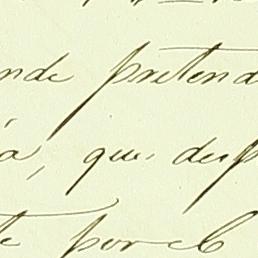 nde pretend
a, que desp
te por el